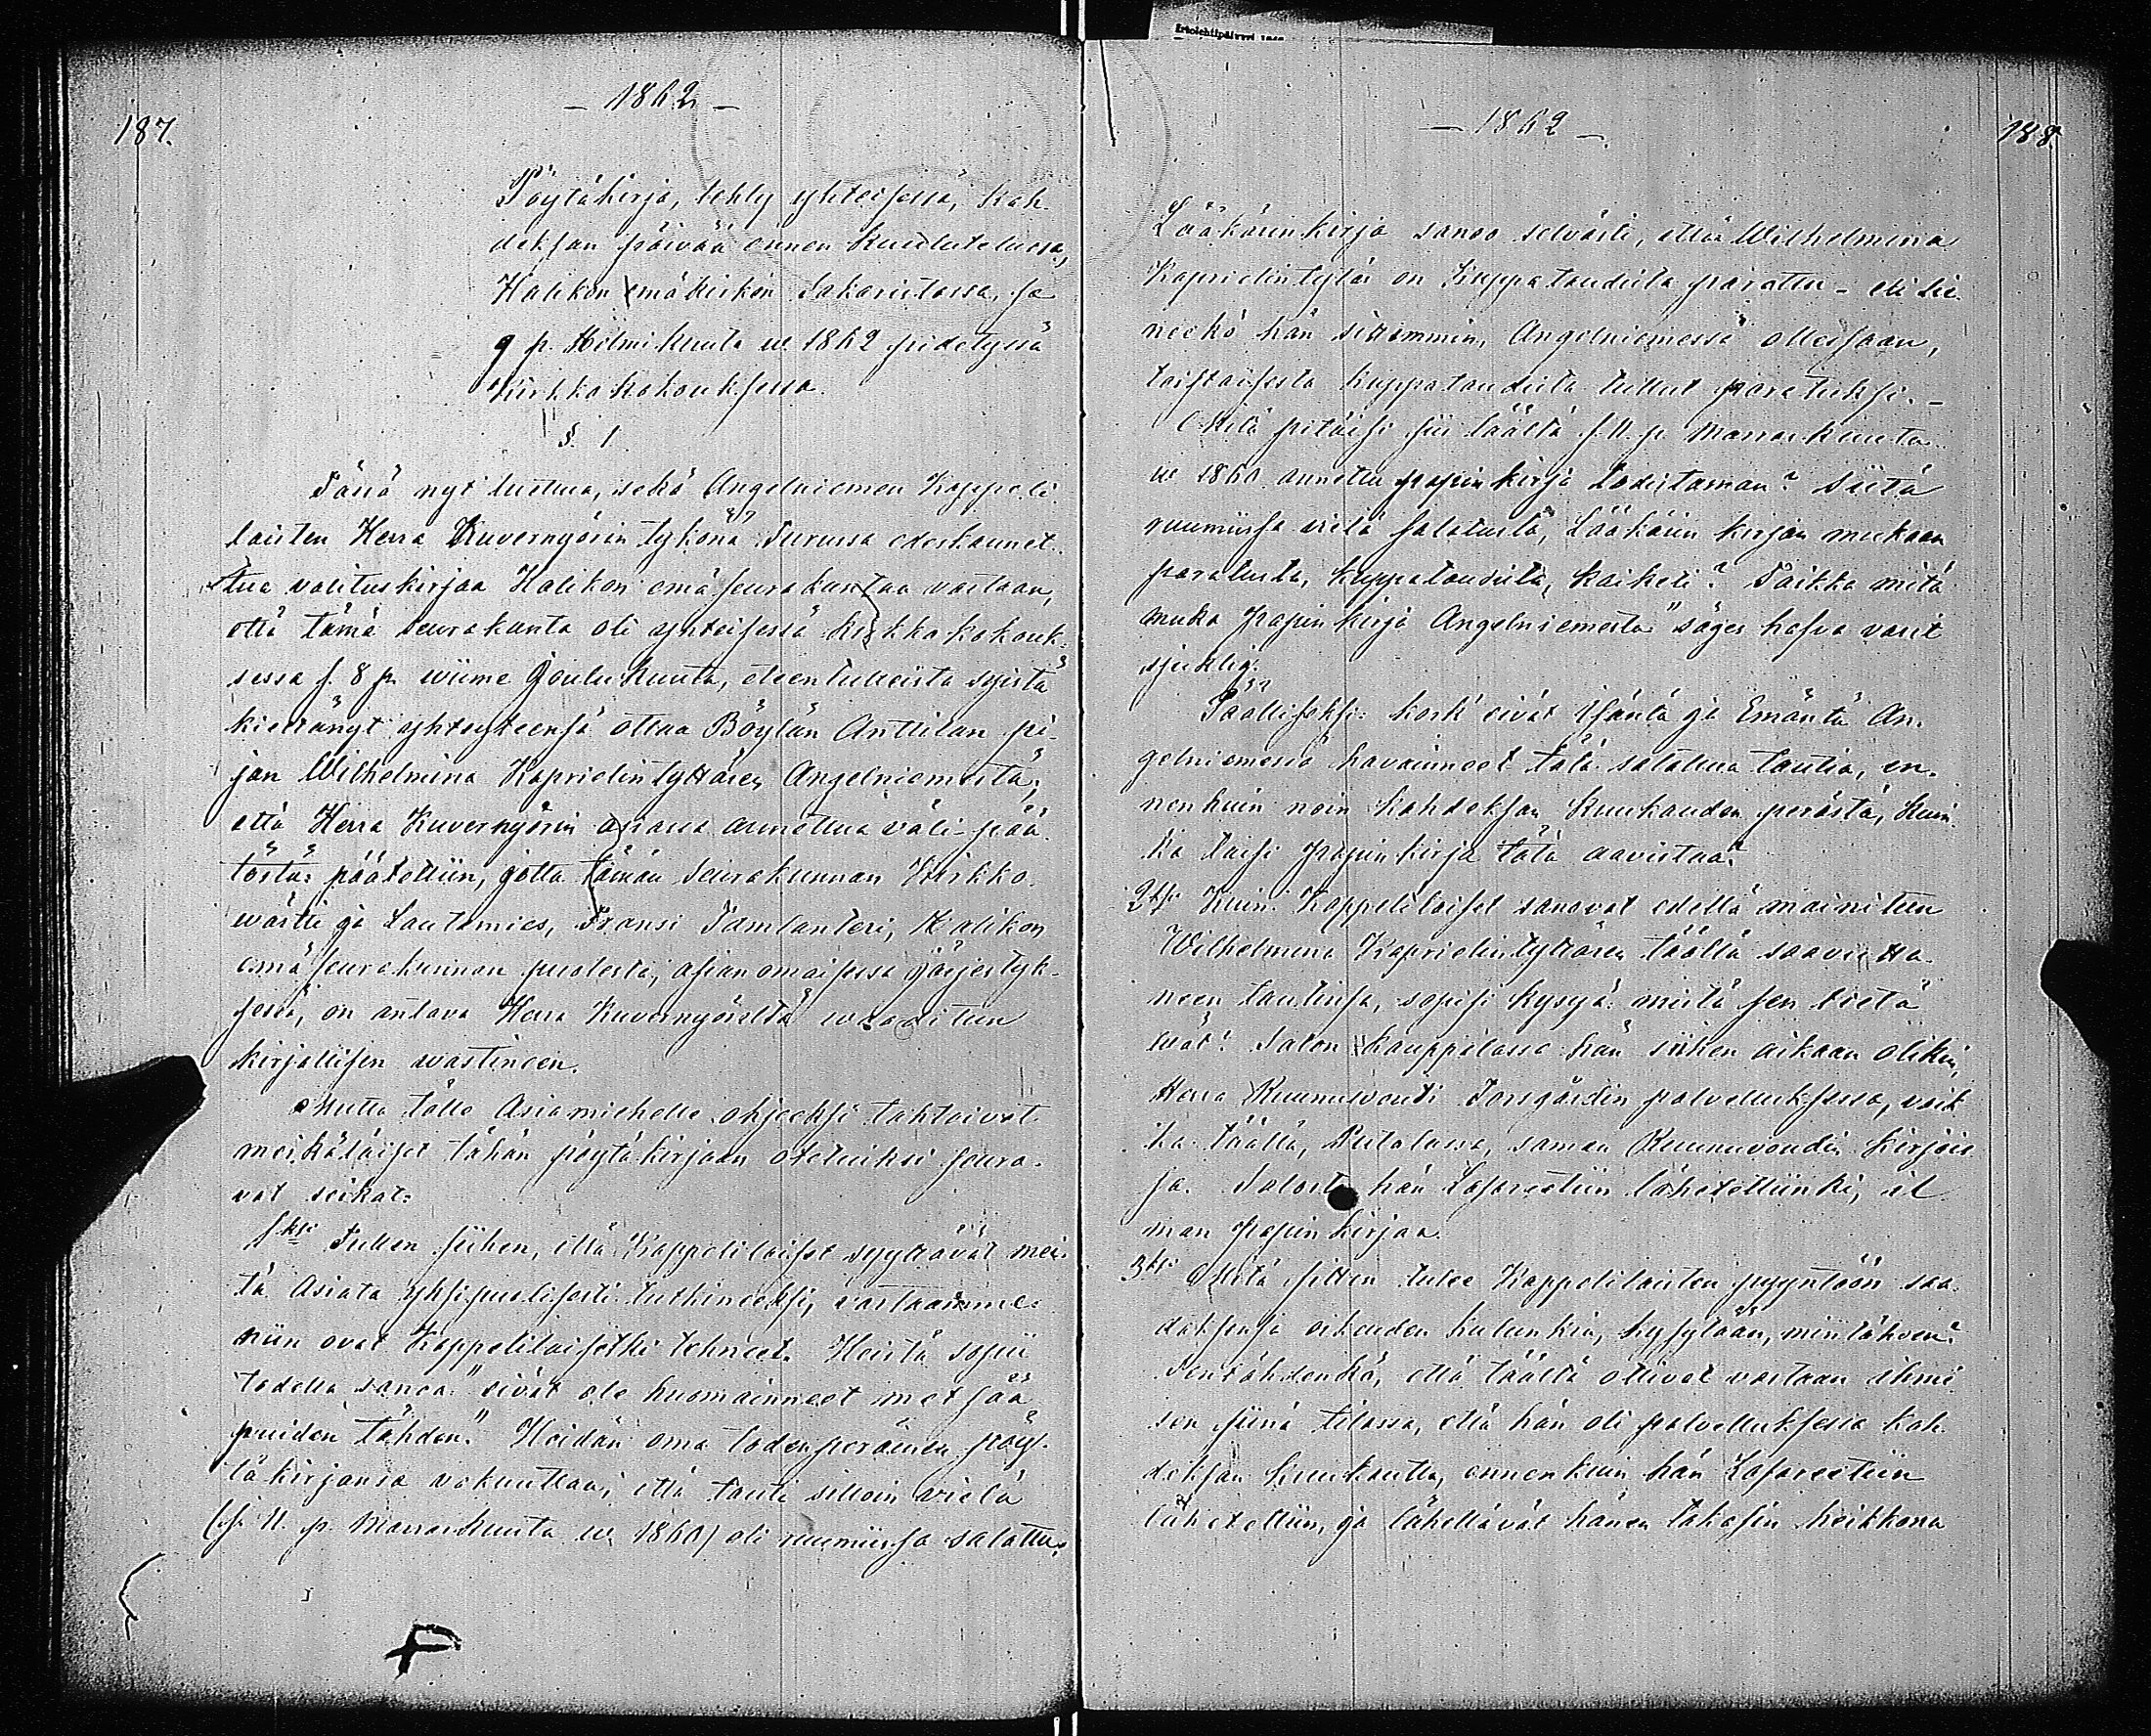 — 1862 —
187.
Pöytäkirja, tehty yhteisessä, kah-
deksan päivää ennen kuulutetussa,
Halikon emäkirkon Sakaristossa, s:a
9 p. Helmikuuta w. 1862 pidetyssä
Kirkkokokouksessa.
§. 1
Tässä nyt luettua, sekä Angelniemen Kappeli-
laisten Herra Kuvernyörin tykönä Turussa edeskannet-
tua valituskirjaa Halikon emäseurakuntaa vastaan,
että tämä seurakunta oli yhteisessä kirkkokokouk-
sessa s. 8 p. wiime Joulukuuta, eteentulleista syistä
kieltänyt yhteyteensä ottaa Böylän Anttilan pi-
jan Wilhelmina Kaprielintyttären Angelniemestä;
että Herra Kuvernyörin asiassa annettua väli-pää-
töstä: päätettiin, jotta tämän seurakunnan Kirkko-
wärtti ja Lautamies, Fransi Tamlanteri, Halikon
emäseurakunnan puolesta, asianomaisessa järjestyk-
sessä, on antava Herra Kuvernyöriltä waaditun
kirjallisen wastineen.
Mutta tälle Asiamiehelle ohjeeksi tahtoivat
meikäläiset tähän pöytäkirjaan otetuiksi seura-
vat seikat:
1ksi Tullen siihen, että Kappelilaiset syyttävät mei-
tä Asiata yksipuolisesti tutkineeksi, vastaamme:
niin ovat Kappelilaisetki tehneet. Heistä sopii
todella sanoa: "eivät ole huomainneet metsää
puiden tähden." Heidän oma todenperäinen pöy-
täkirjansa vakuuttaa, että tauti silloin vielä
(s. 11. p. Marraskuuta w. 1860) oli ruumiissa salattu.
— 1862 —
188.
Lääkärinkirja sanoo selvästi, että Wilhelmina
Kaprielintytär on Kuppataudista parattu - eli lie-
neekö hän sittemmin, Angelniemessä ollessaan,
toistaisesta kuppataudista tullut paratuksi. —
Mitä pitäisi siis täältä s. 11. p. Marraskuuta
w. 1860. annettu papinkirja todistaman? Siitä
ruumiissa vielä salatusta, Lääkärin kirjan mukaan
paratusta, kuppataudista, kaiketi? Taikka mitä
muka papinkirja Angelniemestä "säges hafva varit
sjuklig."
Päälliseksi: kosk' eivät Isäntä ja Emäntä An-
gelniemessä havainneet tätä salattua tautia, en-
nenkuin noin kahdeksan kuukauden perästä, kuin-
ka taisi papinkirja tätä aavistaa?
2ksi Kuin Kappelilaiset sanovat edellä mainitun
Wilhelmina Kaprielintyttären täällä saavutta-
neen tautinsa, sopisi kysyä: mistä sen tietä-
wät? Salon kauppalassa hän siihen aikaan olikin,
Herra Kruunuvouti Forsgårdin palvelluksessa, vaik-
ka täällä, Rutalassa, saman Kruunuvoudin kirjois-
sa. Salosta hän Lasareetiin lähetettiinki, il-
man papinkirjaa.
3ksi Mitä sitten tulee Kappelilaisten pyyntöön saa-
daksensa oikeuden kulunkia, kysytään, minkätähden?
Sentähdenkö, että täältä ottivat vastaan ihmi-
sen siinä tilassa, että hän oli palvelluksessa kah-
deksan kuukautta, ennenkuin hän Lasareetiin
lähetettiin, ja lähettävät hänen takasin heikkona